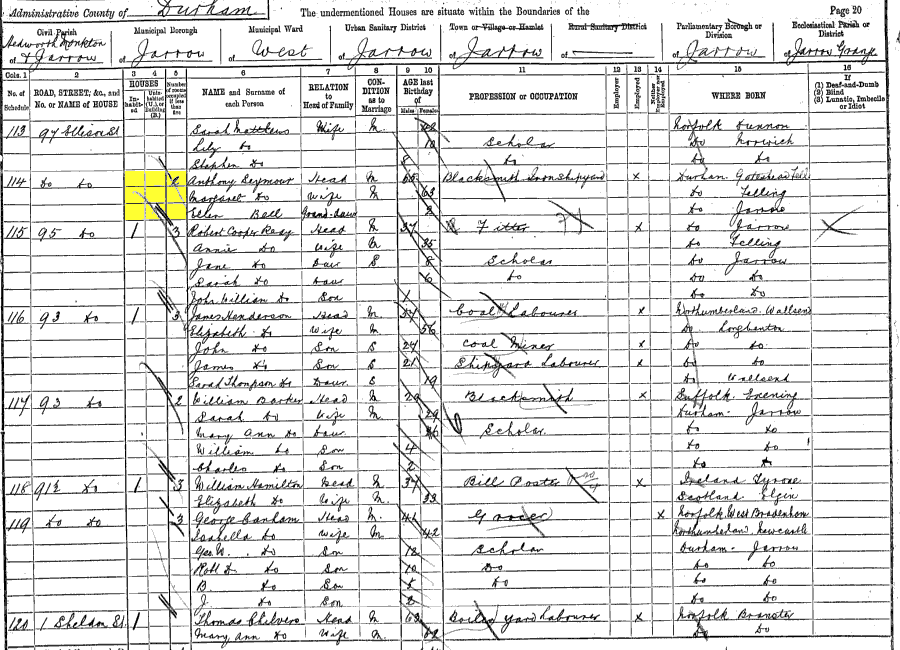 Administrative County of Durham The undermentioned Houses are situate within the Boundaries of the Page 20
Civil Parish Municipal Borough Municipal Ward Urban Sanitary District Town or Village or Hamlet Rural Sanitary District Parliamentary Borough or Division Ecclesiastical Parish or District
of Hedworth Monkton & Jarrow of Jarrow of West of Jarrow of Jarrow of of Jarrow of Jarrow Grange
Cols. 1 2 3 4 5 6 7 8 9 10 11 12 13 14 15 16
No. of Schedule ROAD, STREET, &c., and No. or NAME of HOUSE HOUSES Inhabited Uninhabited (U.), or Building (B.) Number of rooms occupied if less than five NAME and Surname of each Person RELATION to Head of Family CONDITION as to Marriage AGE last Birthday of Males Females PROFESSION or OCCUPATION Employer Employed Neither Employer nor Employed WHERE BORN If (1) Deaf-and-Dumb (2) Blind (3) Lunatic, Imbecile or Idiot
113 97 Ellison St Sarah Matthews Wife M Norfolk
Lily Do 10 Scholar Do Norwich
Stephen Do 8 Do Do Do
114 Do Do 2 Anthony Seymour Head M Blacksmith Iron Shipyard x Durham Gateshead Fell
Margaret Do Wife M 63 Do Felling
Ellen Bell Grand-daur 2 Do Jarrow
115 95 Do 1 3 Robert Cooper Reay Head M 37 Fitter x Do Jarrow
Annie Do Wife M 35 Do Felling
Jane Do Daur S 8 Scholar Do Jarrow
Sarah Do Daur 6 Do Do Do
John William Do Son 1 Do Do
116 93 Do 1 3 James Henderson Head M 57 Coal Labourer x Northumberland Wallsend
Elizabeth Do Wife M 56 Do Longbenton
John Do Son S 24 Coal Miner x Do Do
James Do Son S 21 Shipyard Labourer x Do Do
Sarah Thompson Do Daur S 19 Do Wallsend
117 93 Do 2 William Barker Head M 29 Blacksmith x Suffolk
Sarah Do Wife M 29 Durham Jarrow
Mary Ann Do Daur 6 Scholar Do Do
William Do Son 4 Do Do
Charles Do Son 2 Do Do
118 91½ Do 1 3 William Hamilton Head M 34 Bill Poster x Ireland Tyrone
Elizabeth Do Wife M 33 Scotland Elgin
119 Do Do 3 George Canham Head M 41 Grocer x Norfolk West Bradenham
Isabella Do Wife M 42 Northumberland Newcastle
Geo W. Do Son 12 Scholar Durham Jarrow
Robt D. Do Son 10 Do Do Do
B. Do Son 5 Do Do Do
J. Do Son 2 Do Do
120 1 Sheldon St 1 Thomas Chilvers Head M 63 Boiler yard Labourer x Norfolk
Mary Ann Do Wife M 62 Do Do